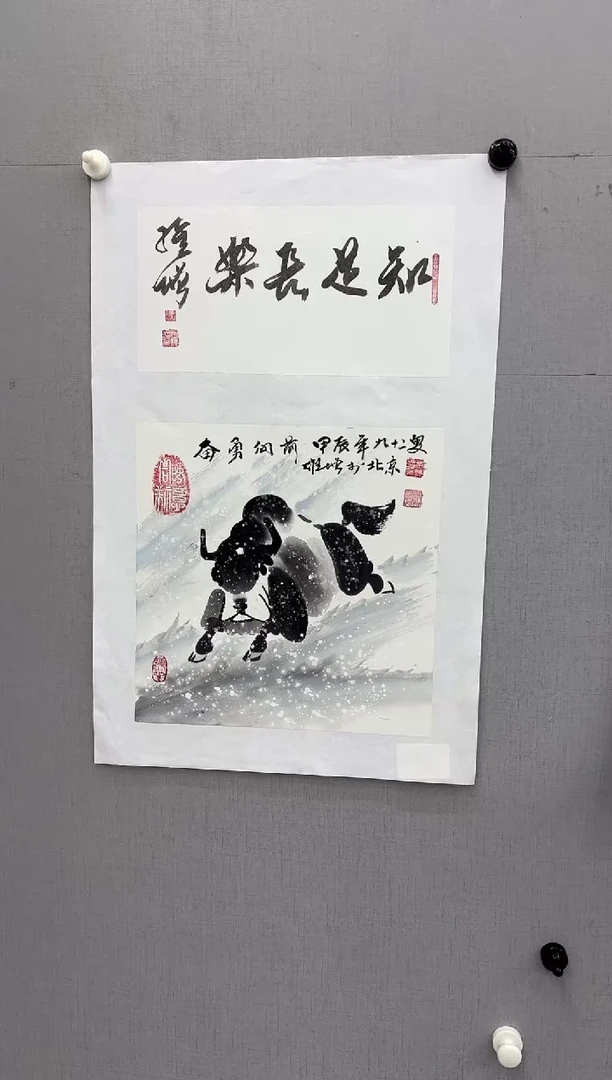 知足長樂
奋勇向前 甲辰年九十二叟
於北京